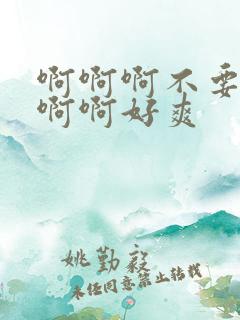 啊啊啊不要
啊啊好爽
姚勤毅
未经同意禁止转载